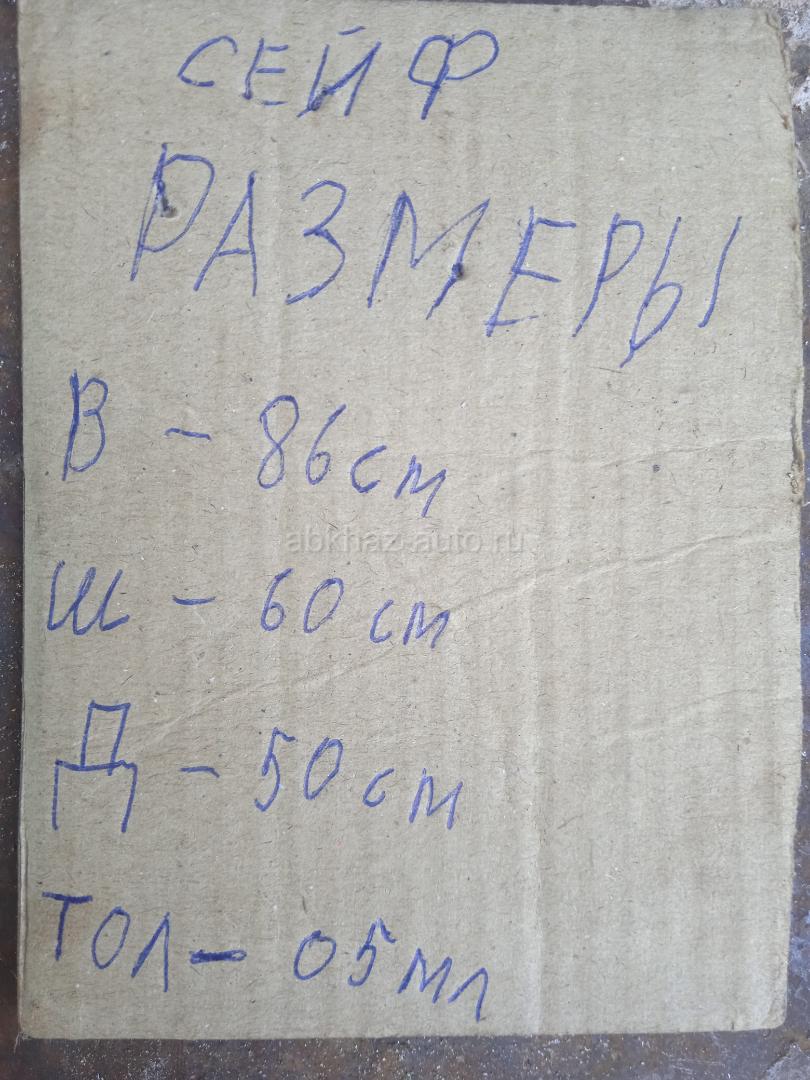 СЕЙФ
РАЗМЕРЫ
В - 86 см
abkhaz-auto.ru
Ш - 60 см
Д - 50 см
ТОЛ - 05 мл